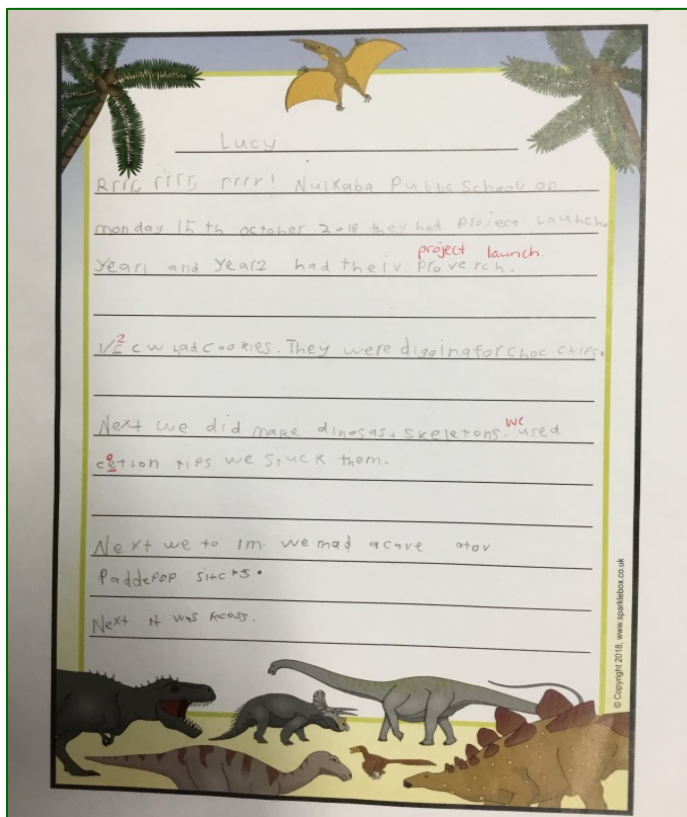 Lucy
Rrrr, rrrr, rrrr! Nulkaba Public School on
monday 15 th october 2018 they had Project Launch.
project launch.
Year1 and Year2 had their
2
1/2 c w had cookies. They were digging for choc chips.
we
Next we did make dinosas skeletons. used
o
cetton tips we stuck them.
Next we to 1m. we mad acave ator
Paddepop sticks.
Next it was
© Copyright 2018, www.sparklebox.co.uk